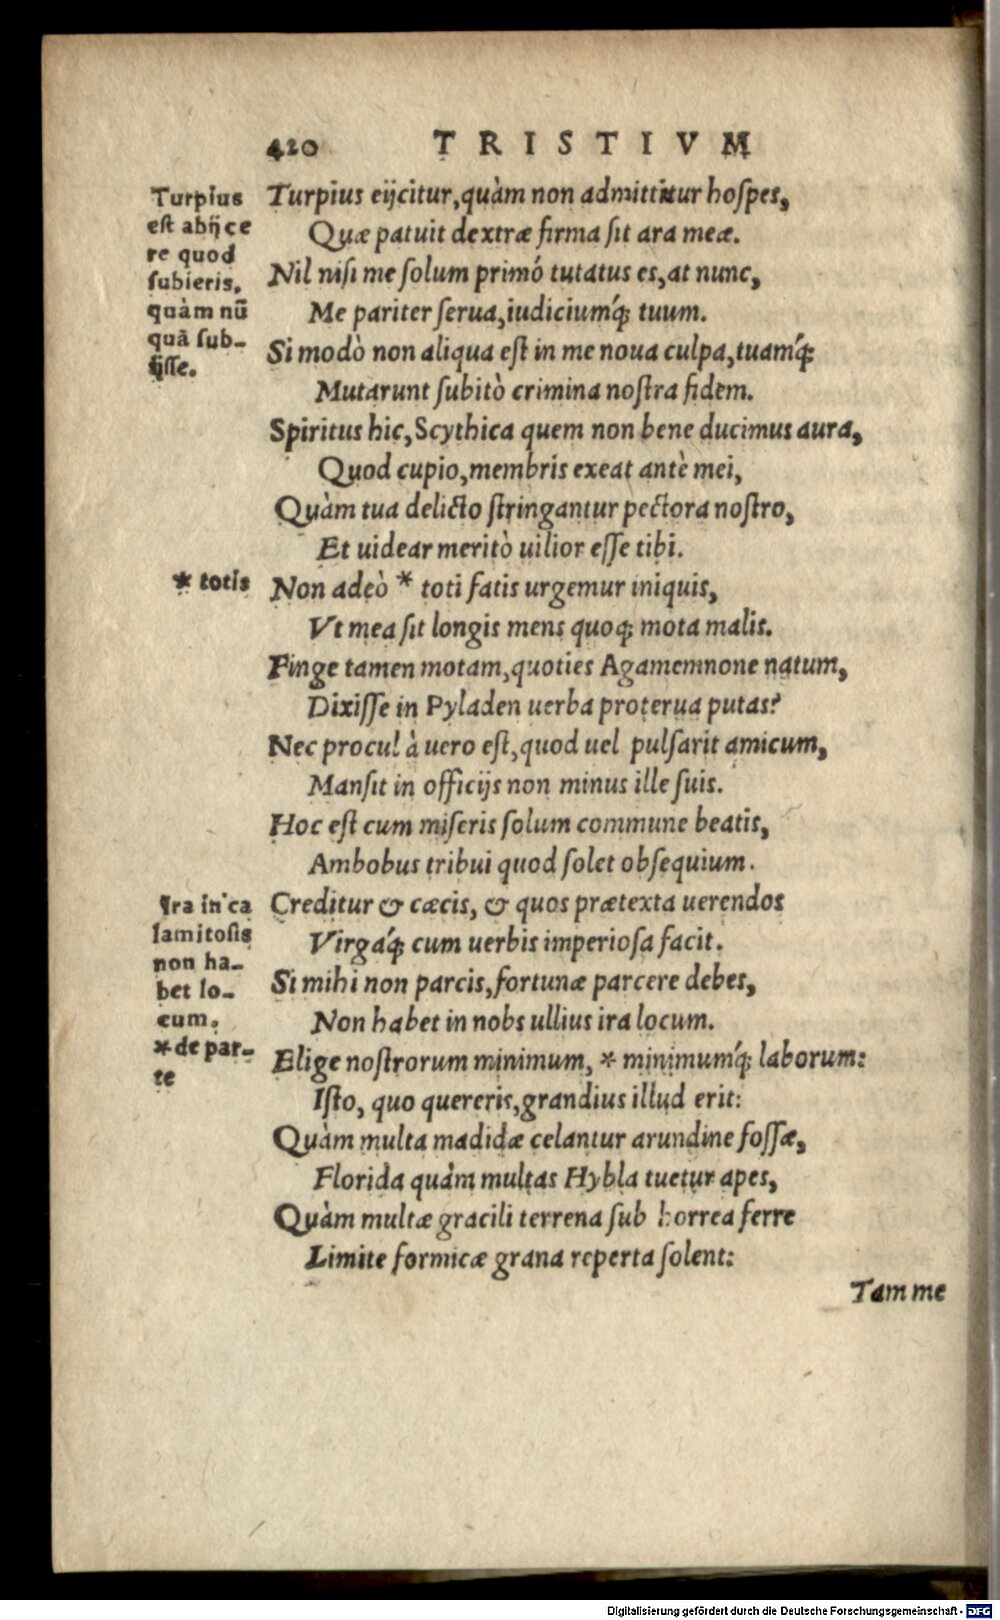 420 TRISTIVM
Turpius eijcitur, quàm non admittitur hoſpes,
Quæ patuit dextræ firma ſit ara meæ.
Nil niſi me ſolum primó tutatus es, at nunc,
Me pariter ſerua, iudiciumq́; tuum.
Si modò non aliqua eſt in me noua culpa, tuamq́;
Mutarunt ſubitò crimina noſtra fidem.
Spiritus hic, Scythica quem non bene ducimus aura,
Quod cupio, membris exeat antè mei,
Quàm tua delicto ſtringantur pectora noſtro,
Et uidear meritò uilior eſſe tibi.
Non adeò * toti fatis urgemur iniquis,
Vt mea ſit longis mens quoq; mota malis.
Finge tamen motam, quoties Agamemnone natum,
Dixiſſe in Pyladen uerba proterua putas?
Nec procul à uero eſt, quod uel pulſarit amicum,
Manſit in officijs non minus ille ſuis.
Hoc eſt cum miſeris ſolum commune beatis,
Ambobus tribui quod ſolet obſequium.
Creditur & cæcis, & quos prætexta uerendos
Virgaq́; cum uerbis imperioſa facit.
Si mihi non parcis, fortunæ parcere debes,
Non habet in nobs ullius ira locum.
Elige noſtrorum minimum, * minimumq́; laborum:
Iſto, quo quereris, grandius illud erit:
Quàm multa madidæ celantur arundine foſſæ,
Florida quàm multas Hybla tuetur apes,
Quàm multæ gracili terrena ſub horrea ferre
Limite formicæ grana reperta ſolent:
Tam me
Turpius
eſt abijce
re quod
ſubieris,
quàm nũ
quã ſub-
ijſſe.
* totis
Ira in ca
lamitoſis
non ha-
bet lo-
cum.
* de par-
te
Digitalisierung gefördert durch die Deutsche Forschungsgemeinschaft - DFG